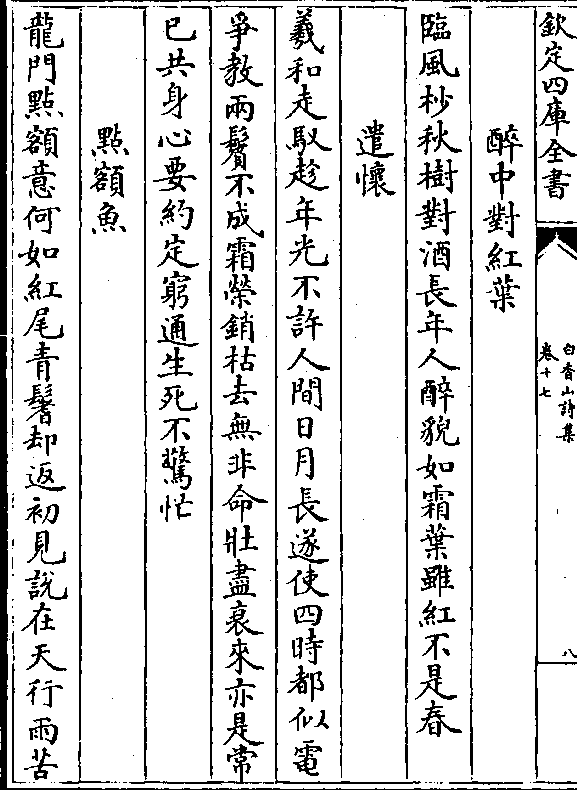 欽定四庫全書
白香山詩集
卷十七
八
醉中對紅葉
臨風杪秋樹對酒長年人醉貌如霜葉雖紅不是春
遣懷
羲和走馭趁年光不許人間日月長遂使四時都似電
爭教兩鬢不成霜榮銷枯去無非命壯盡衰來亦是常
已共身心要約定窮通生死不驚忙
點額魚
龍門點額意何如紅尾青鬐却返初見說在天行雨苦